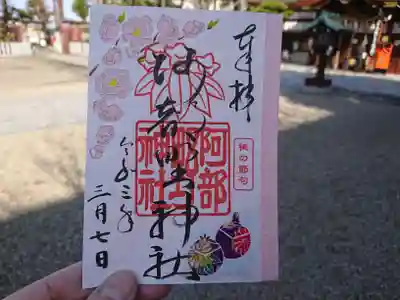 奉拝
桃の節句
阿部野神社
阿部野神社
令和三年
三月七日